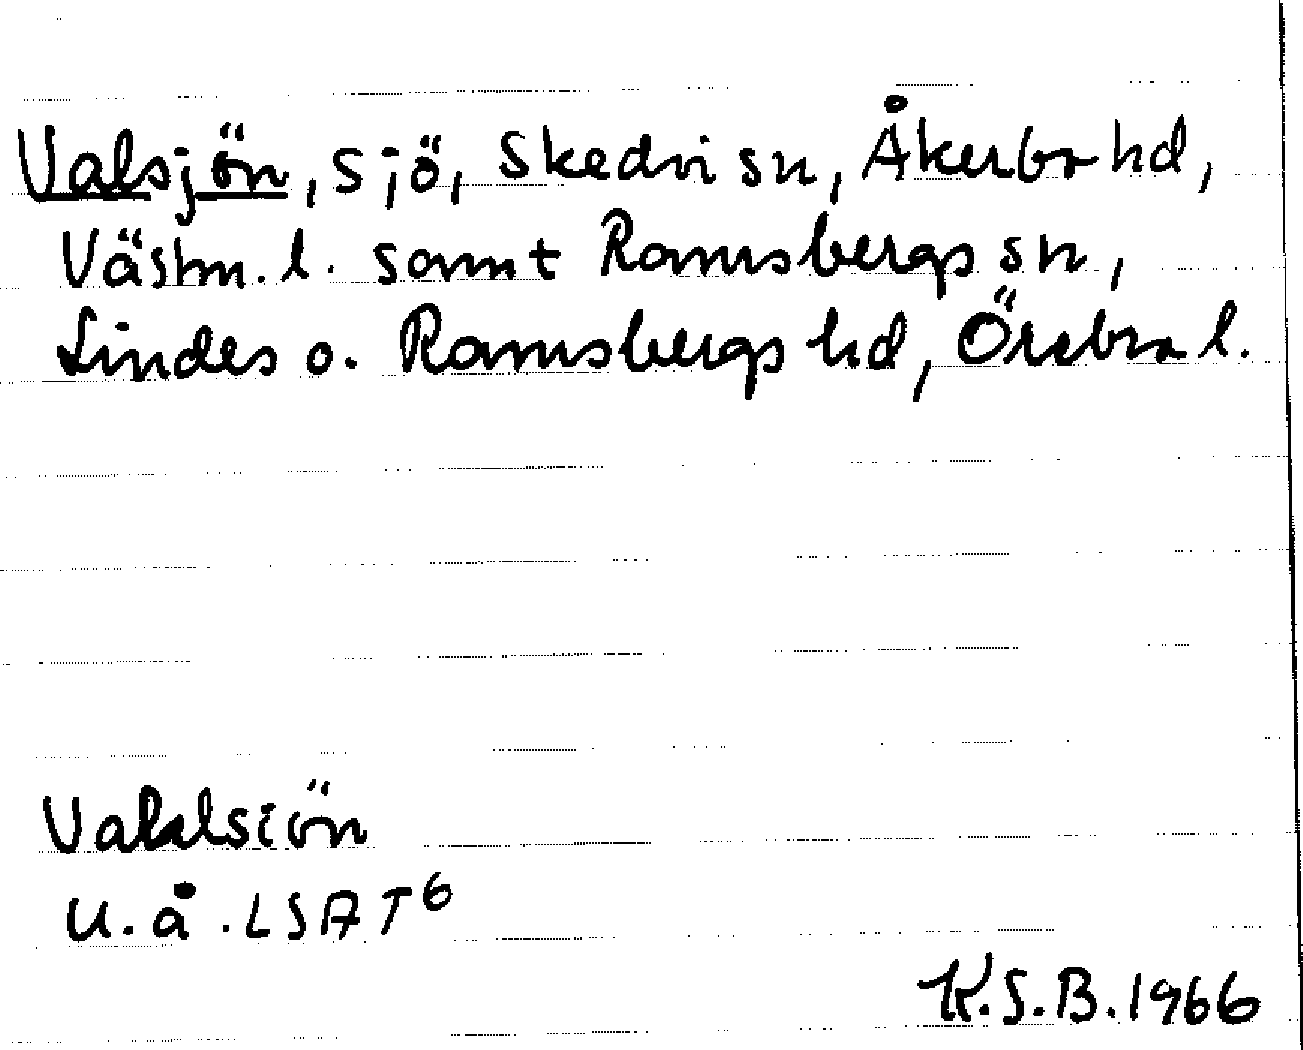 Valsjön, sjö, Skedvi sn, Åkerbo hd,
Västm. l. samt Ramsbergs sn,
Lindes o. Ramsbergs hd, Örebro l.
Valalsiön
u.å. LSA T6
K.S.B. 1966